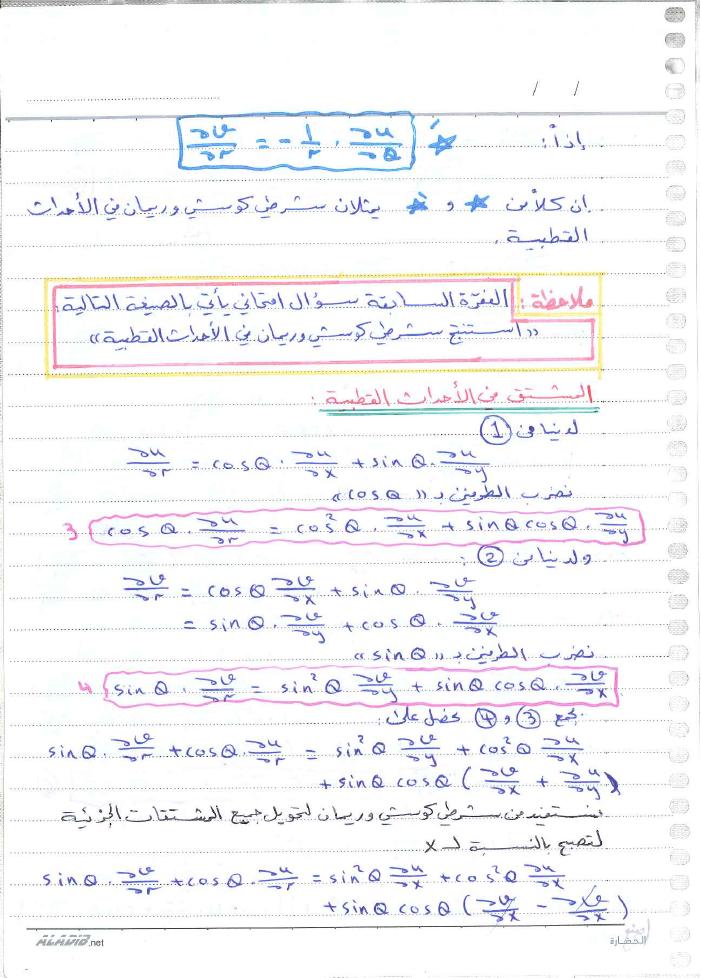 / /
إذاً: ∂v/∂r = -1/r · ∂u/∂θ
إن كلاً من ★ و ★ يمثلان شرطي كوشي وريمان في الأحداث
القطبية.
ملاحظة: الفقرة السابقة سؤال امتحاني يأتي بالصيغة التالية:
«استنتج شرطي كوشي وريمان في الأحداث القطبية»
المشتق في الأحداث القطبية:
لدينا من ①
∂u/∂r = cosθ · ∂u/∂x + sinθ · ∂u/∂y
نضرب الطرفين بـ «cosθ»
3 cosθ · ∂u/∂r = cos²θ · ∂u/∂x + sinθ cosθ · ∂u/∂y
ولدينا من ②:
∂v/∂r = cosθ ∂v/∂x + sinθ · ∂v/∂y
= sinθ · ∂v/∂y + cosθ · ∂v/∂x
نضرب الطرفين بـ «sinθ»
4 sinθ · ∂v/∂r = sin²θ ∂v/∂y + sinθ cosθ · ∂v/∂x
بجمع ③ و ④ نحصل على:
sinθ · ∂v/∂r + cosθ · ∂u/∂r = sin²θ ∂v/∂y + cos²θ ∂u/∂x
+ sinθ cosθ (∂v/∂x + ∂u/∂y)
نستفيد من شرطي كوشي وريمان لتحويل جميع المشتقات الجزئية
لتصبح بالنسبة لـ x
sinθ · ∂v/∂r + cosθ · ∂u/∂r = sin²θ ∂u/∂x + cos²θ ∂u/∂x
+ sinθ cosθ (∂v/∂x - ∂v/∂x)
ALADIB.net
الحضارة